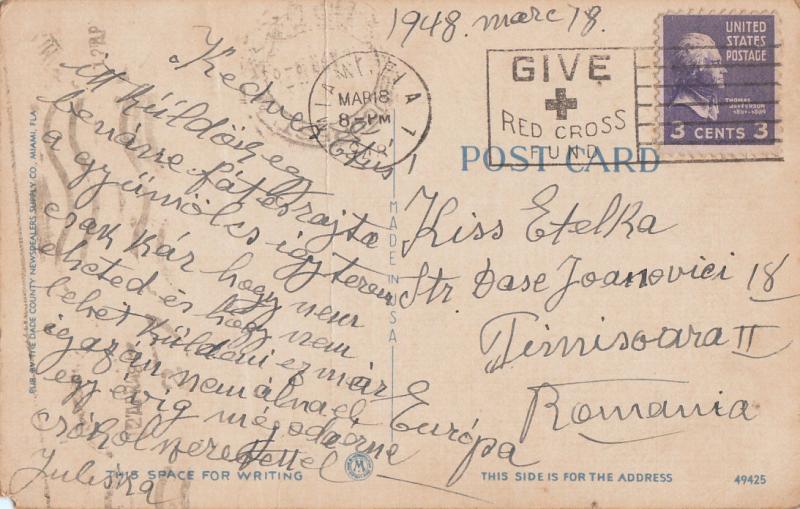 1948. marc 18.
UNITED
STATES
POSTAGE
THOMAS
JEFFERSON
3 CENTS 3
GIVE
RED CROSS
FUND
MIAMI
MAR 18
8-PM
POST CARD
Kedves Etus
itt küldök egy
banánne fát és rajta
a gyümölcs így terem
csak kár hogy nem
eheted és hogy nem
lehet küldeni ez már
igazan nem álnaet
egy évig még odaérne
csókol szeretettel
Juliska
Kiss Etelka
Str Dase Joanovici 18
Timisoara II
Romania
Európa
MADE IN USA
PUB. BY THE DADE COUNTY NEWSDEALERS SUPPLY CO., MIAMI, FLA.
THIS SPACE FOR WRITING
M
THIS SIDE IS FOR THE ADDRESS
49425